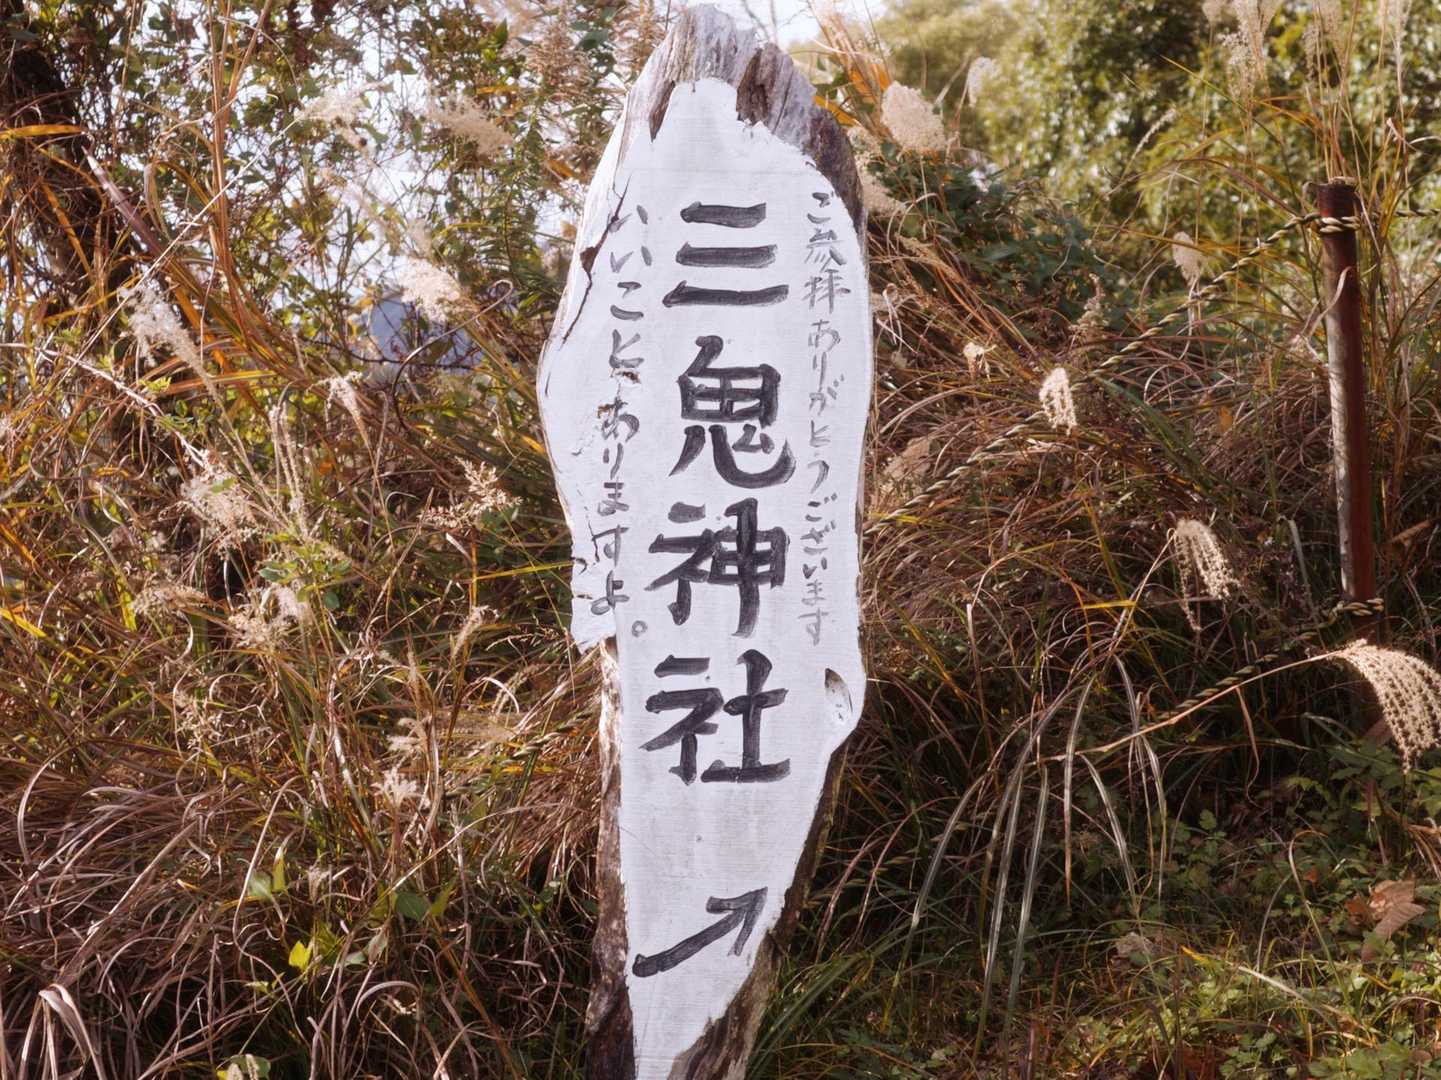 ご参拝ありがとうございます
三鬼神社
いいことありますよ。